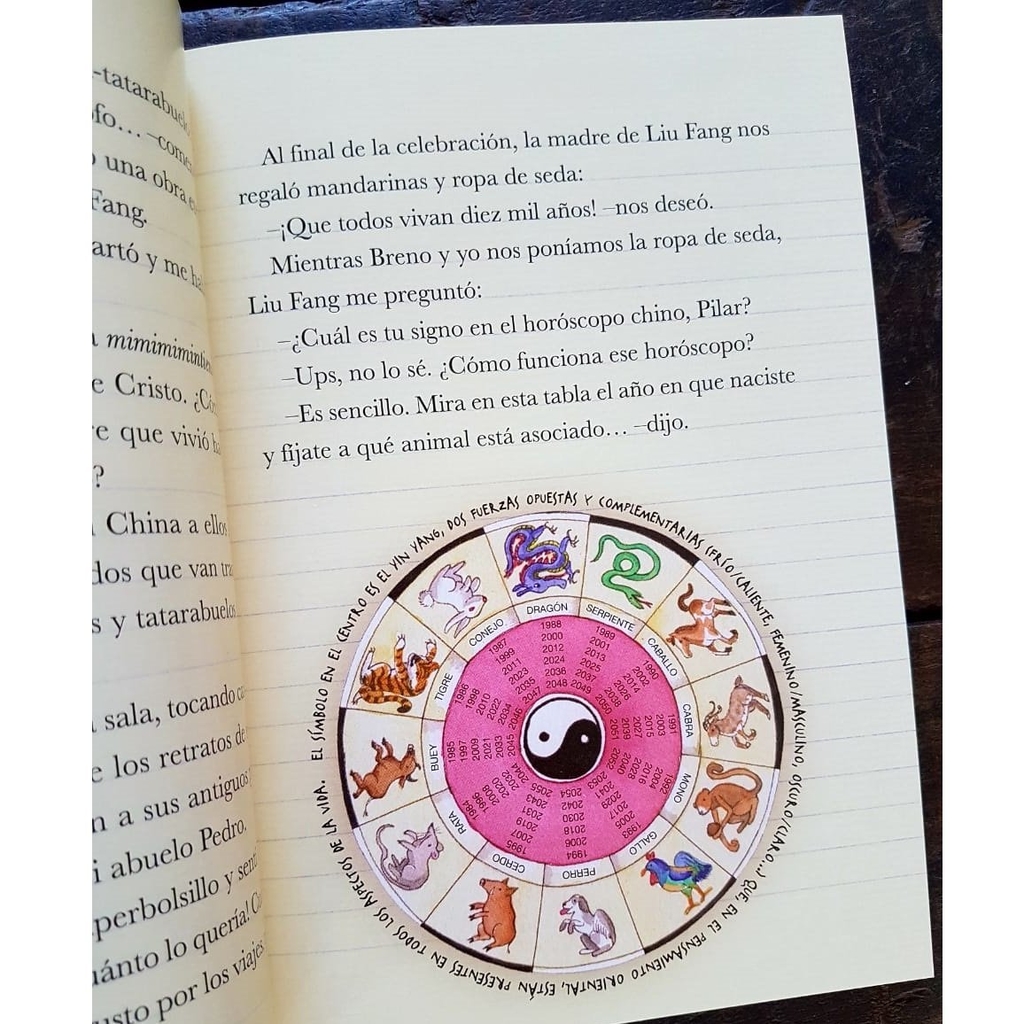 -tatarabuelo
una obra
Fang.
artó y me
mimimimin
e Cristo.
e que vivió
?
China a ellos
dos que van
s y tatarabuelos
sala, tocando
e los retratos de
n a sus antiguos
i abuelo Pedro.
perbolsillo y
uánto lo quería!
usto por los viajes
Al final de la celebración, la madre de Liu Fang nos
regaló mandarinas y ropa de seda:
–¡Que todos vivan diez mil años! –nos deseó.
Mientras Breno y yo nos poníamos la ropa de seda,
Liu Fang me preguntó:
–¿Cuál es tu signo en el horóscopo chino, Pilar?
–Ups, no lo sé. ¿Cómo funciona ese horóscopo?
–Es sencillo. Mira en esta tabla el año en que naciste
y fíjate a qué animal está asociado… –dijo.
EL SÍMBOLO EN EL CENTRO ES EL YIN YANG, DOS FUERZAS OPUESTAS Y COMPLEMENTARIAS (FRÍO/CALIENTE, FEMENINO/MASCULINO, OSCURO/CLARO...) QUE, EN EL PENSAMIENTO ORIENTAL, ESTÁN PRESENTES EN TODOS LOS ASPECTOS DE LA VIDA.
DRAGÓN
1988
2000
2012
2024
2036
2048
SERPIENTE
1989
2001
2013
2025
2037
2049
CABALLO
1990
2002
2014
2026
2038
2050
CABRA
1991
2003
2015
2027
2039
2051
MONO
1992
2004
2016
2028
2040
GALLO
1993
2005
2017
2029
2041
2053
PERRO
1994
2006
2018
2030
2042
2054
CERDO
1995
2007
2019
2031
2043
2055
RATA
1984
1996
2008
2020
2032
2044
BUEY
1985
1997
2009
2021
2033
2045
TIGRE
1986
1998
2010
2022
2034
2046
CONEJO
1987
1999
2011
2023
2035
2047